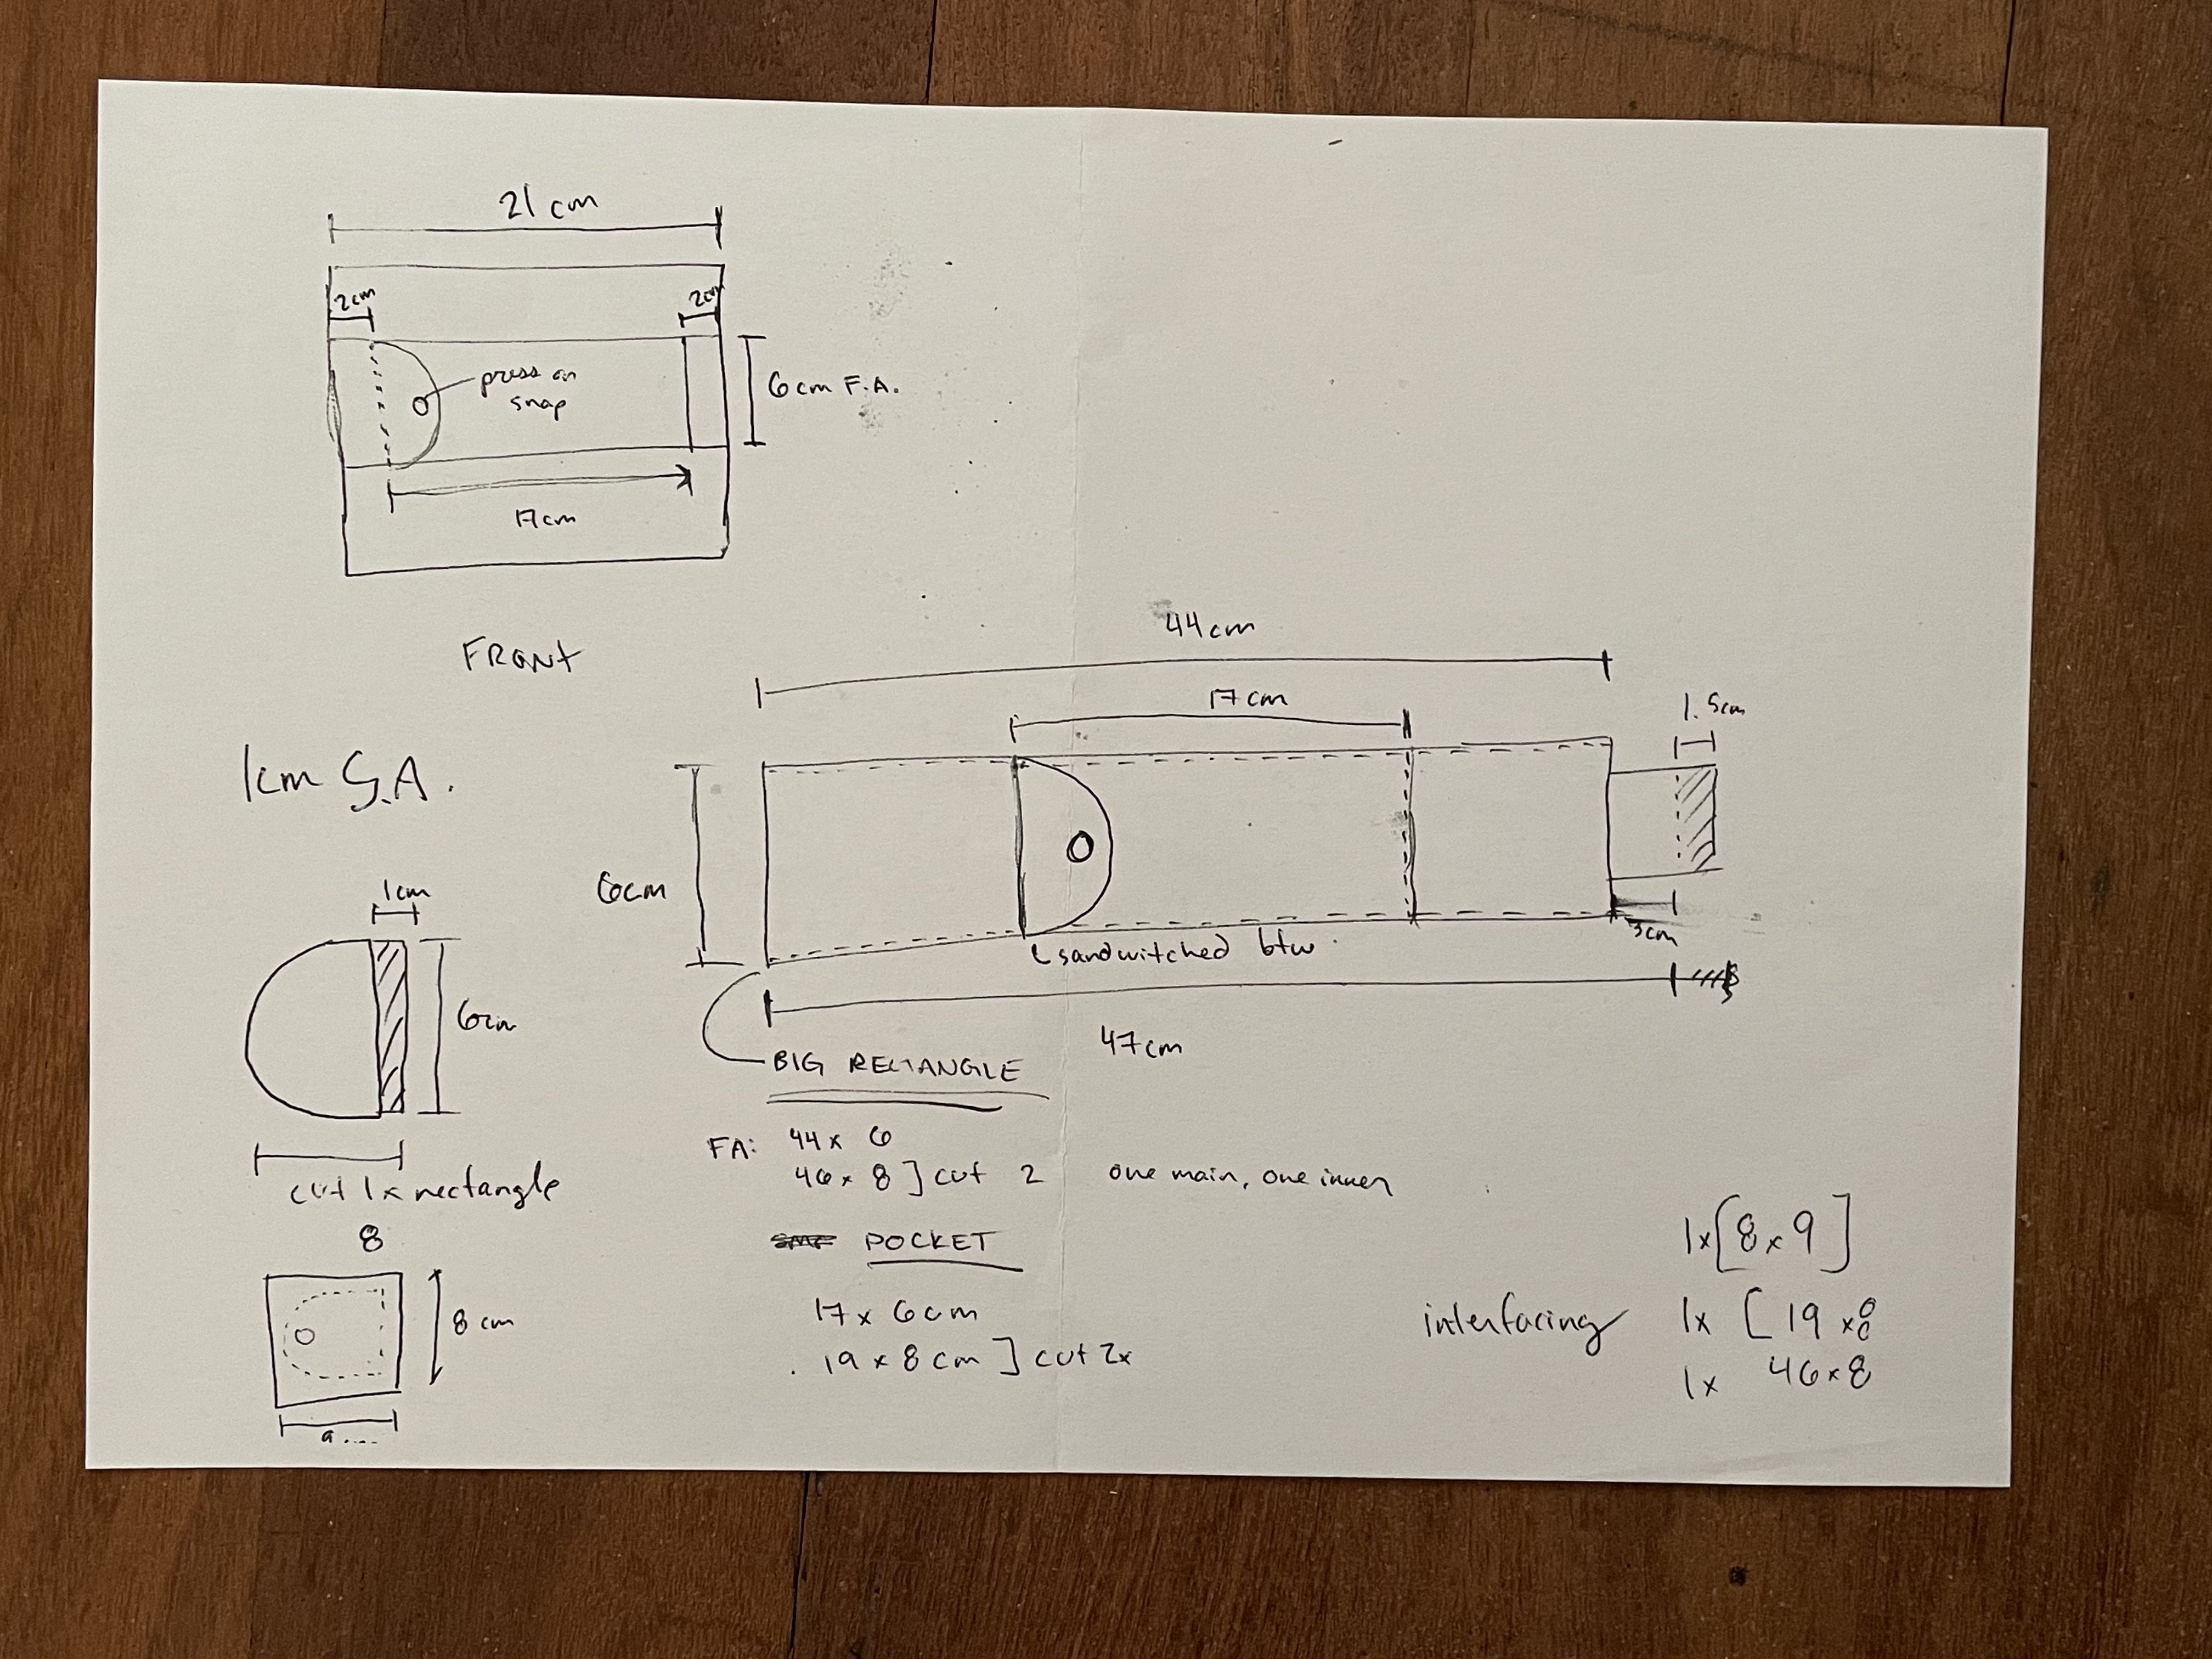 21 cm
2cm
2cm
press on
snap
6cm F.A.
17cm
FRONT
44cm
17cm
1.5cm
1cm S.A.
6cm
1cm
6cm
sandwitched btw.
3cm
47cm
BIG RECTANGLE
FA: 44 x 6
46 x 8 ] cut 2 one main, one inner
cut 1x rectangle
8
8 cm
POCKET
17 x 6cm
19 x 8 cm ] cut 2x
1x [8 x 9]
interfacing 1x [ 19 x 8
1x 46 x 8